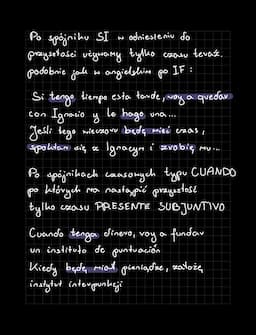 Po spójniku SI w odniesieniu do
przyszłości używamy tylko czasu teraź.
podobnie jak w angielskim po IF:
Si tengo tiempo esta tarde, voy a quedar
con Ignacio y le hago una...
Jeśli tego wieczoru będę mieć czas,
spotkam się z Ignacym i zrobię mu...
Po spójnikach czasowych typu CUANDO
po których ma nastąpić przyszłość
tylko czasu PRESENTE SUBJUNTIVO
Cuando tenga dinero, voy a fundar
un instituto de puntuación
Kiedy będę miał pieniądze, założę
instytut interpunkcji